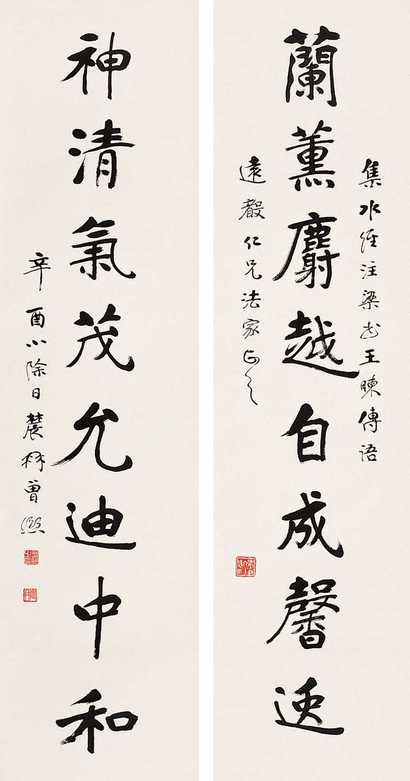 集水經注梁書王暕傳語
蘭薰麝越自成馨逸
遠 仁兄法家正之
神清氣茂允迪中和
辛酉小除日農髯曾熙